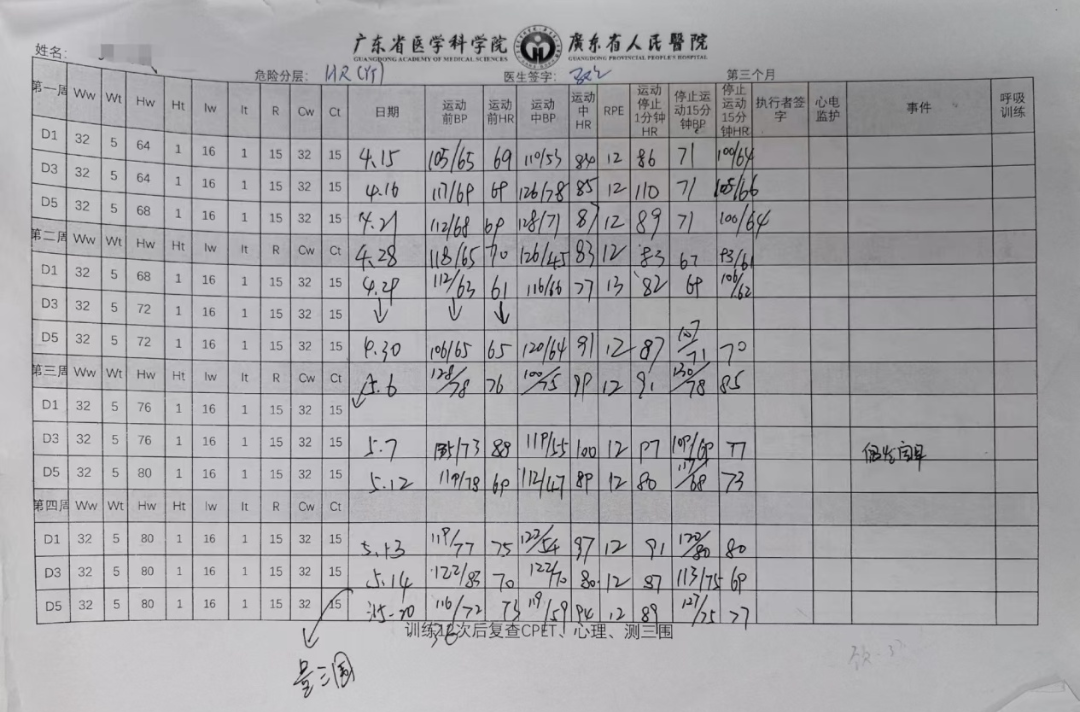 广东省医学科学院 廣东省人民醫院
GUANGDONG ACADEMY OF MEDICAL SCIENCES GUANGDONG PROVINCIAL PEOPLE'S HOSPITAL
姓名:
危险分层: 医生签字: 第三个月
第一周 Ww Wt Hw Ht Iw It R Cw Ct 日期 运动前BP 运动前HR 运动中BP 运动中HR RPE 运动停止1分钟HR 停止运动15分钟BP 停止运动15分钟HR 执行者签字 心电监护 事件 呼吸训练
D1 32 5 64 1 16 1 15 32 15 4.15 105/65 69 110/53 12 86 71 100/64
D3 32 5 64 1 16 1 15 32 15 4.16 117/69 69 126/78 85 12 110 71 105/66
D5 32 5 68 1 16 1 15 32 15 4.21 112/68 69 128/71 87 12 89 71 100/64
第二周 Ww Wt Hw Ht Iw It R Cw Ct 4.28 118/65 70 126/45 83 12 83 67 93/61
D1 32 5 68 1 16 1 15 32 15 4.29 112/63 61 116/66 77 13 82 69 106/62
D3 32 5 72 1 16 1 15 32 15
D5 32 5 72 1 16 1 15 32 15 4.30 106/65 65 120/64 91 12 87 107/71 70
第三周 Ww Wt Hw Ht Iw It R Cw Ct 5.6 128/78 76 100/75 99 12 91 130/78 85
D1 32 5 76 1 16 1 15 32 15
D3 32 5 76 1 16 1 15 32 15 5.7 /73 88 119/55 100 12 97 109/69 77 偶发房早
D5 32 5 80 1 16 1 15 32 15 5.12 119/78 69 112/47 89 12 80 117/68 73
第四周 Ww Wt Hw Ht Iw It R Cw Ct
D1 32 5 80 1 16 1 15 32 15 5.13 119/77 75 122/54 97 12 91 120/80 80
D3 32 5 80 1 16 1 15 32 15 5.14 122/83 70 122/70 80 12 87 113/75 69
D5 32 5 80 1 16 1 15 32 15 116/72 73 119/59 94 12 89 127/75 77
训练 次后复查CPET、心理、测三围
36
量三围